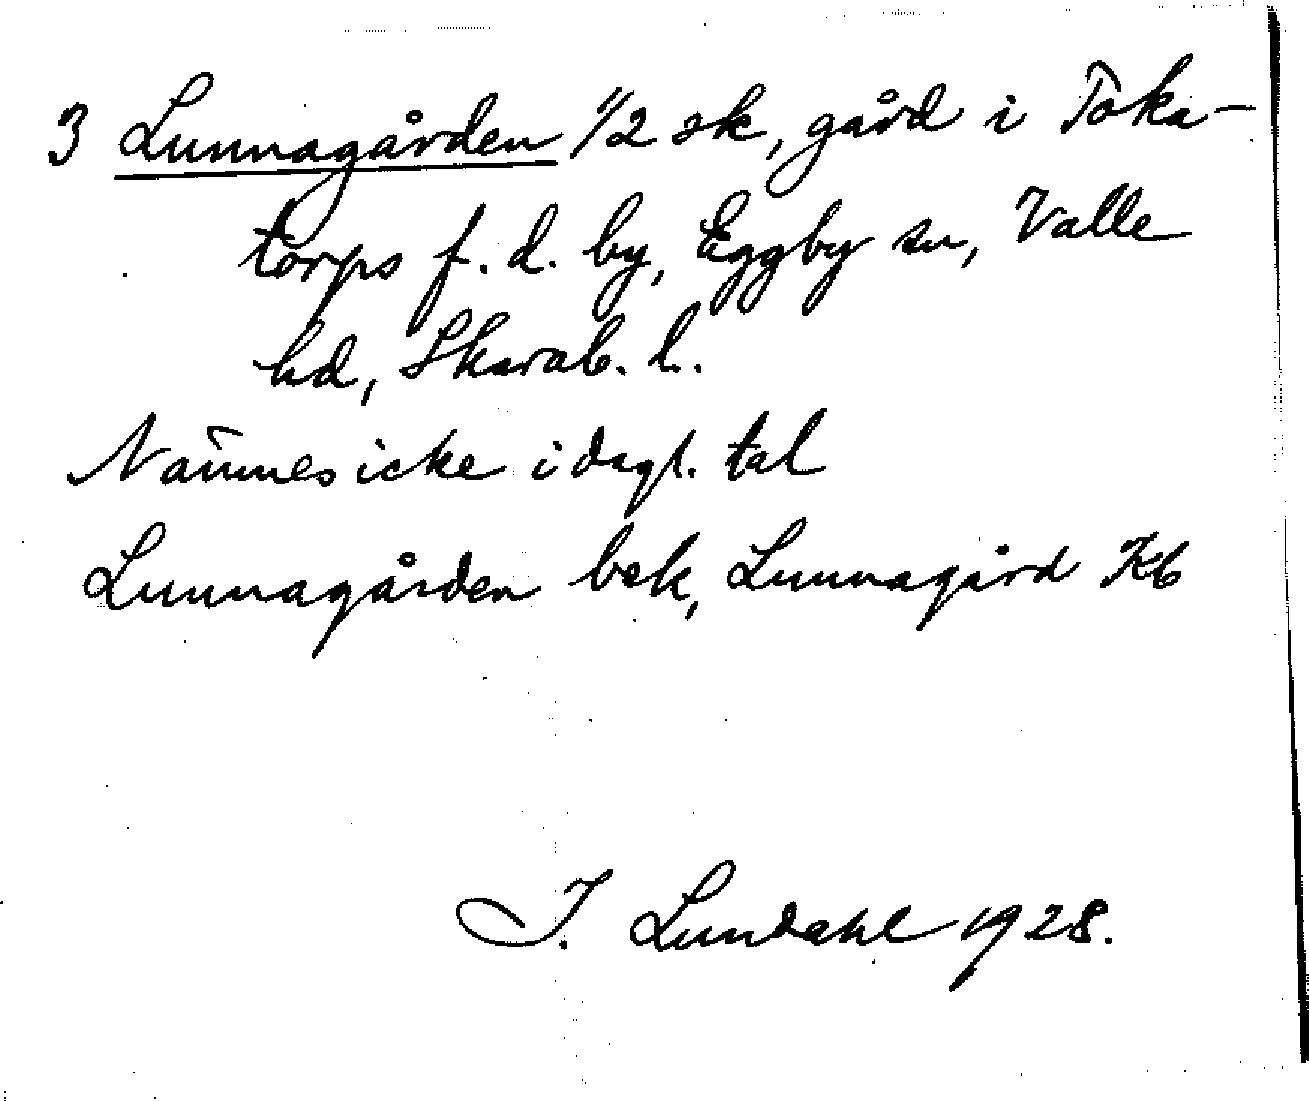 3 Lunnagården 1/2 sk, gård i Toka-
torps f. d. by, Eggby sn, Valle
hd, Skarab. l.
Nämnes icke i dagl. tal
Lunnagården bek, Lunnagård Kb
I. Lundahl 1928.